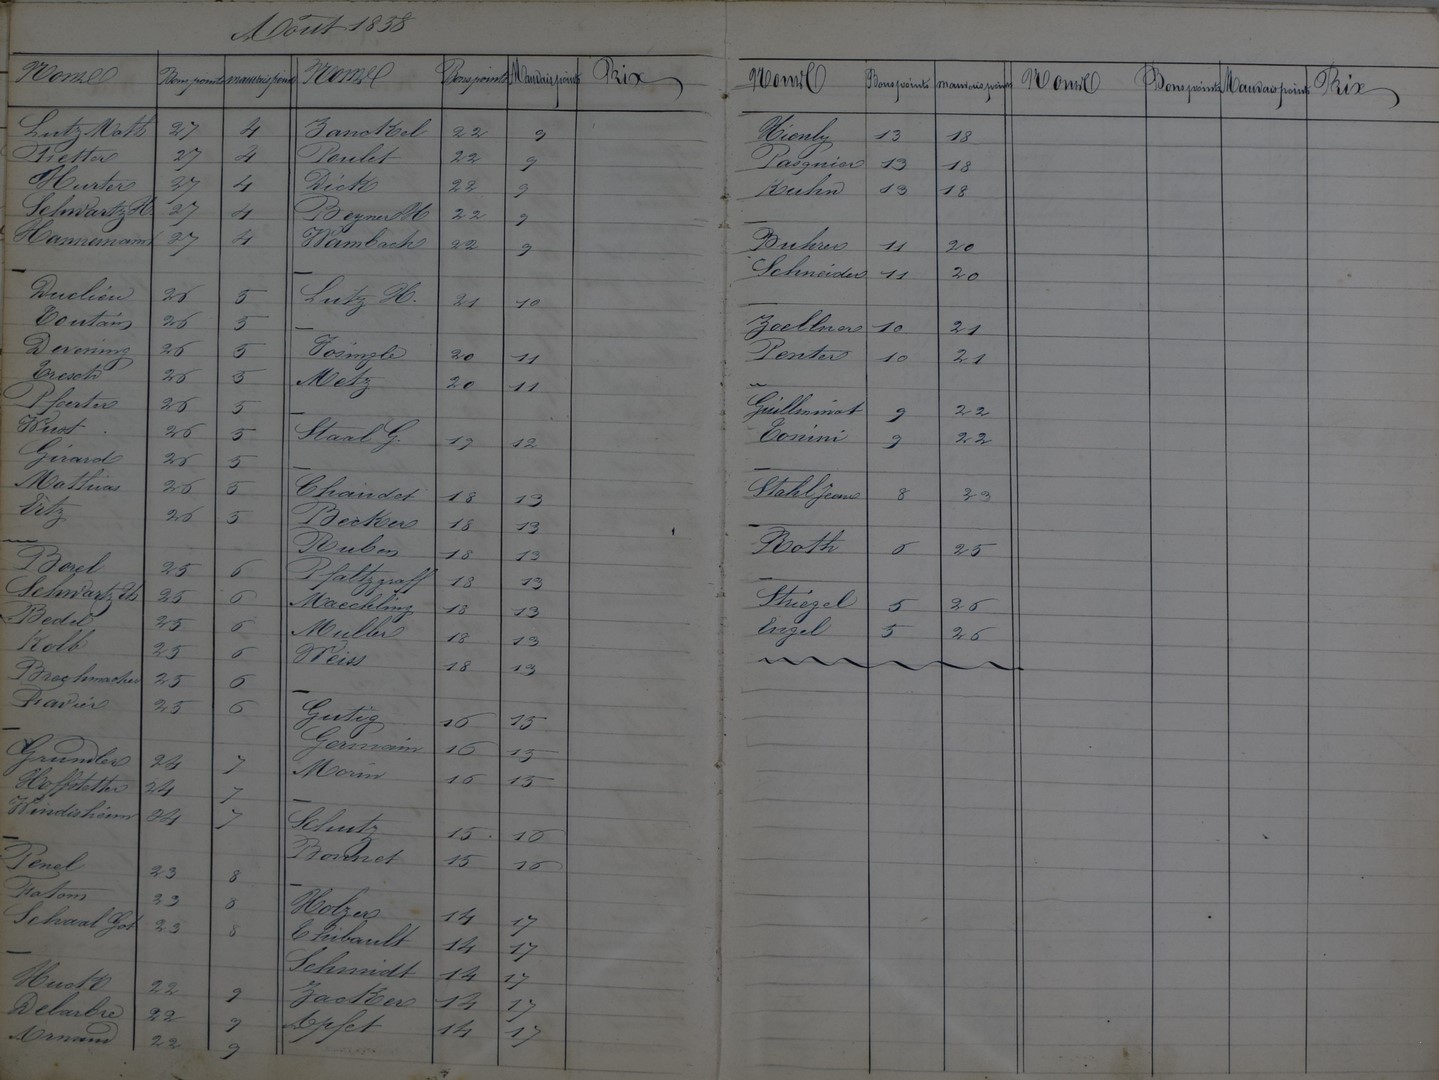 Août 1838
Noms Bons points mauvais points
Lutz Math 27 4
Rietter 27 4
Hurter 27 4
Schwartz H. 27 4
Hannemann 27 4
Duclieu 26 5
Coutans 26 5
Devening 26 5
Cresch 26 5
Pfoerter 26 5
Wust 26 5
Girard 26 5
Mathias 26 5
Urtz 26 5
Borel 25 6
Schwartz 25 6
Bedel 25 6
Kolb 25 6
Brechmacher 25 6
Favier 25 6
Grundler 24 7
Hoffstetter 24 7
Winderheim 24 7
Penel 23 8
Fatom 23 8
Schaal Got 23 8
Huck 22 9
Delarbre 22 9
Arnaud 22 9
Noms Bons points Mauvais points Prix
Zanokel 22 9
Poulet 22 9
Dick 22 9
Beyner M 22 9
Wambach 22 9
Lutz H. 21 10
20 11
Metz 20 11
Staal G. 19 12
Chaudet 18 13
Becker 18 13
Ruben 18 13
Pfaltzgraff 18 13
Maechling 18 13
Muller 18 13
Weiss 18 13
Gutig 16 15
Germain 16 15
Morin 16 15
Schutz 15 16
Bonnet 15 16
Holzer 14 17
Thibault 14 17
Schmidt 14 17
Zacker 14 17
Apfet 14 17
Noms Bons points mauvais points
Hienly 13 18
Pasquier 13 18
Kuhn 13 18
Buhrer 11 20
Schneider 11 20
Zoellner 10 21
Penter 10 21
Guilleminot 9 22
Tonini 9 22
Stahl Jean 8 23
Roth 6 25
Stiegel 5 26
Engel 5 26
Noms Bons points Mauvais points Prix